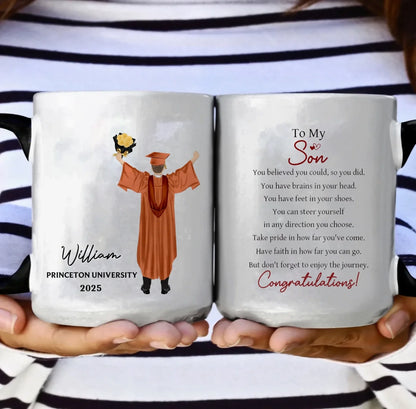 William
PRINCETON UNIVERSITY
2025
To My
Son
You believed you could, so you did.
You have brains in your head.
You have feet in your shoes.
You can steer yourself
in any direction you choose.
Take pride in how far you've come.
Have faith in how far you can go.
But don't forget to enjoy the journey.
Congratulations!